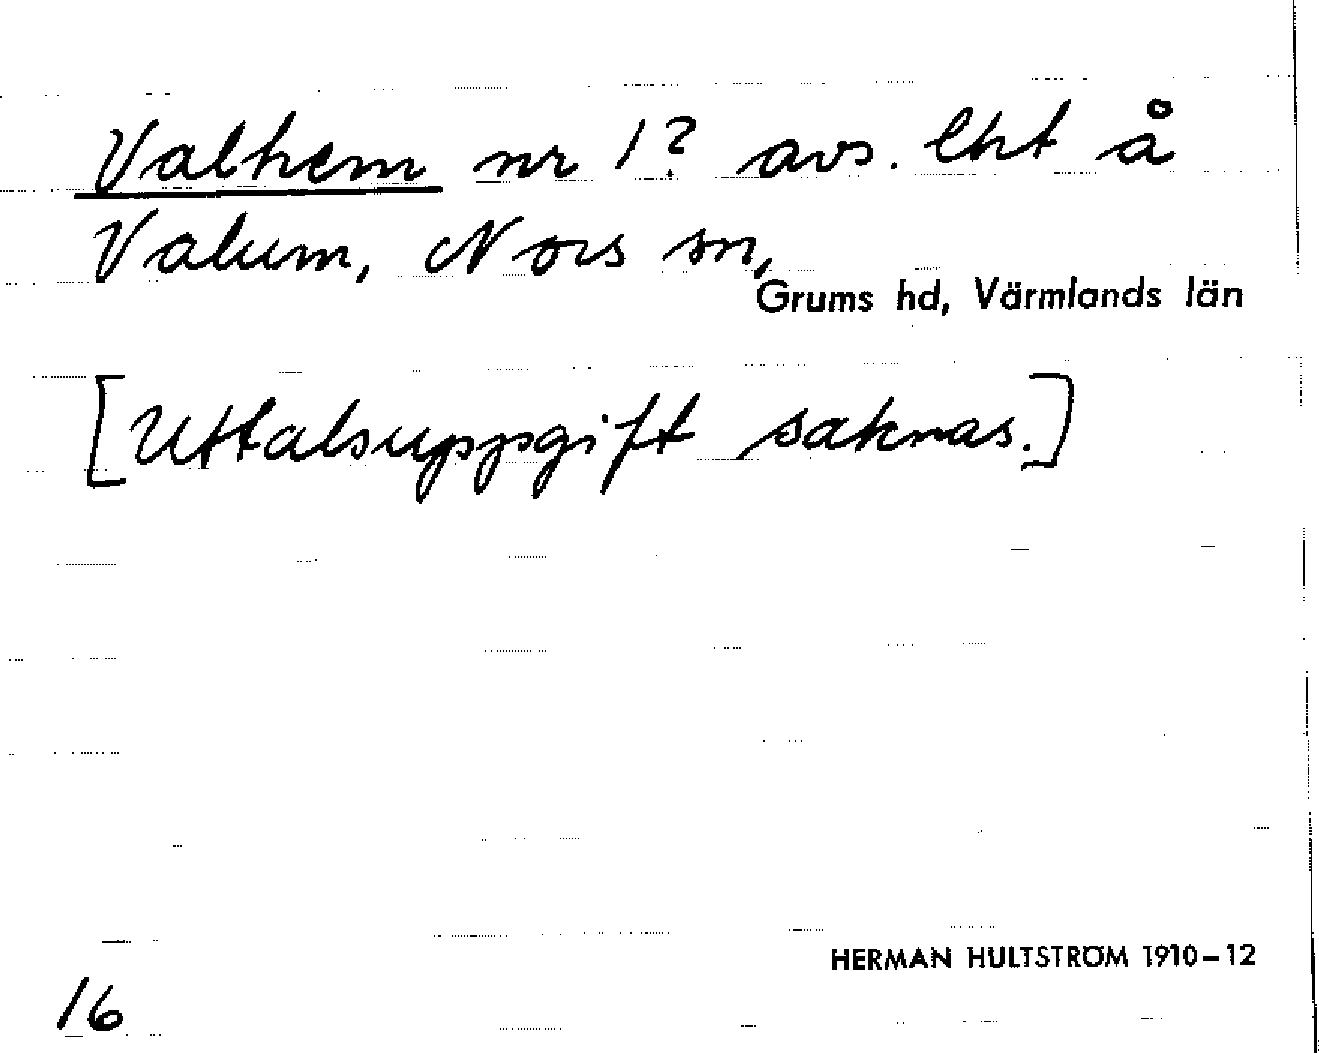 Valhem nr 1? avs. lht å
Valum, Nors sn,
Grums hd, Värmlands län
[Uttalsuppgift saknas.]
HERMAN HULTSTRÖM 1910–12
16